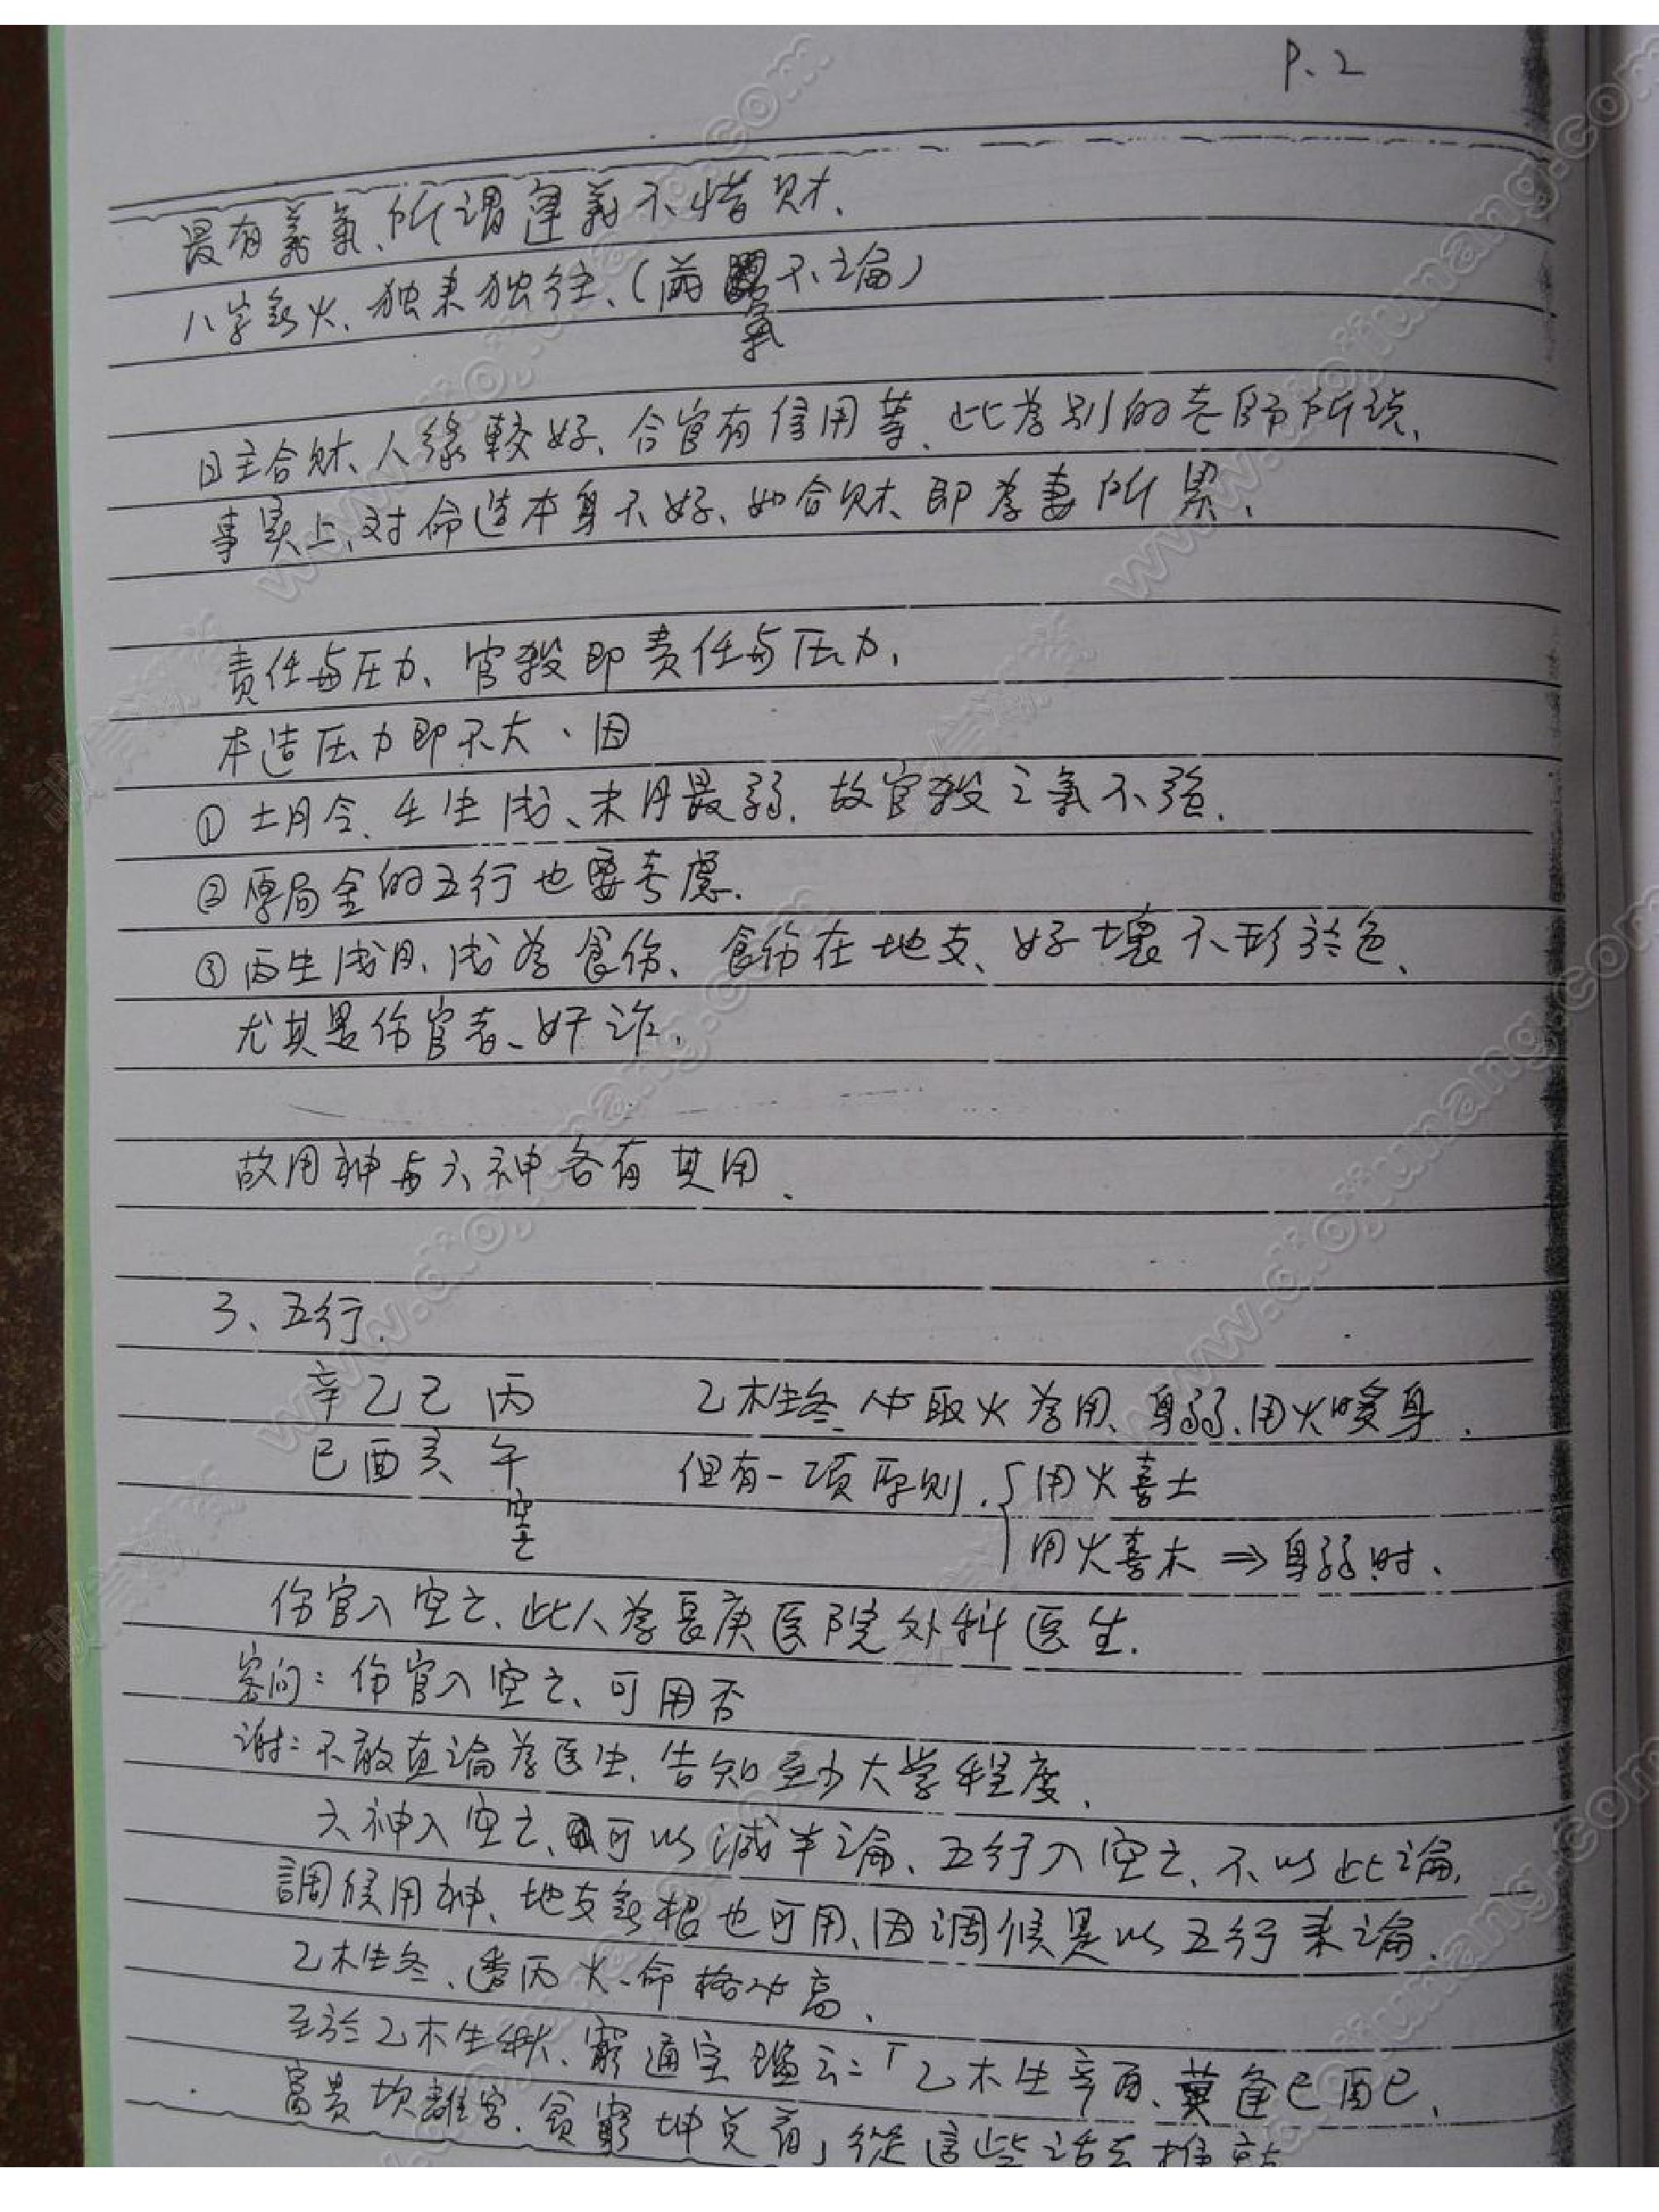 P.2
最有義氣、所謂逢義不惜財、
八字無火、独来独往、(兩 不論)
氣
日主合財、人緣較好、合官有信用等、此為別的老師所说、
事実上、对命造本身不好、如合财、即為妻所累、
责任与压力、官殺即责任与压力、
本造压力即不大、因
①土月令、壬生 、未月最弱、故官殺之氣不強、
②原局金的五行也要考慮、
③丙生 月、 為食伤、食伤在地支、好壞不形於色、
尤其是伤官者、奸诈、
故用神与六神各有其用、
3、五行、
辛乙己丙 乙木生冬、必取火為用、身弱、用火暖身、
巳酉亥午 但有一项原则、{用火喜土
空亡 用火喜木⇒身弱时、
伤官入空亡、此人為長庚医院外科医生、
客问:伤官入空亡、可用否
谢:不敢直論為医生、告知至少大学程度、
六神入空亡、可以減半論、五行入空亡、不以此論、
調候用神、地支無根也可用、因调候是以五行来論、
乙木生冬、透丙火、命格必高、
至於乙木生秋、窮通宝鑑云:「乙木生辛酉、莫逢巳酉巳、
富貴坎離宮、貧窮坤兌宿」從這些话去推